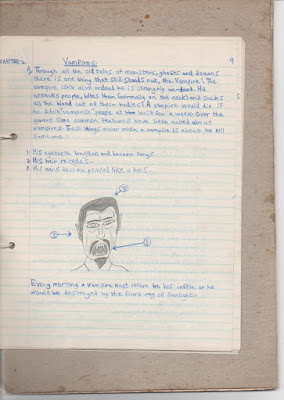 CHAPTER 2
Vampires:
9
Through all the old tales of monsters, ghosts and demons
there is one thing that still stands out, the Vampire! The
vampire isn't alive or dead he is strangely un-dead. He
attacks people, bites them (normally on the neck) and sucks
5
all the blood out of their bodies! A vampire would die if
he didn't "vampires" people at least for a week. Over the
years some common features have been noted about
vampires. These things occur when a vampire is about to kill
someone.
1. His eyeteeth lengthen and become fangs
2. His hair recedes.
3. His ears become pointed like a bats.
2
3
1
Every morning a vampire must return to his coffin, or he
would be destroyed by the first ray of sunlight.